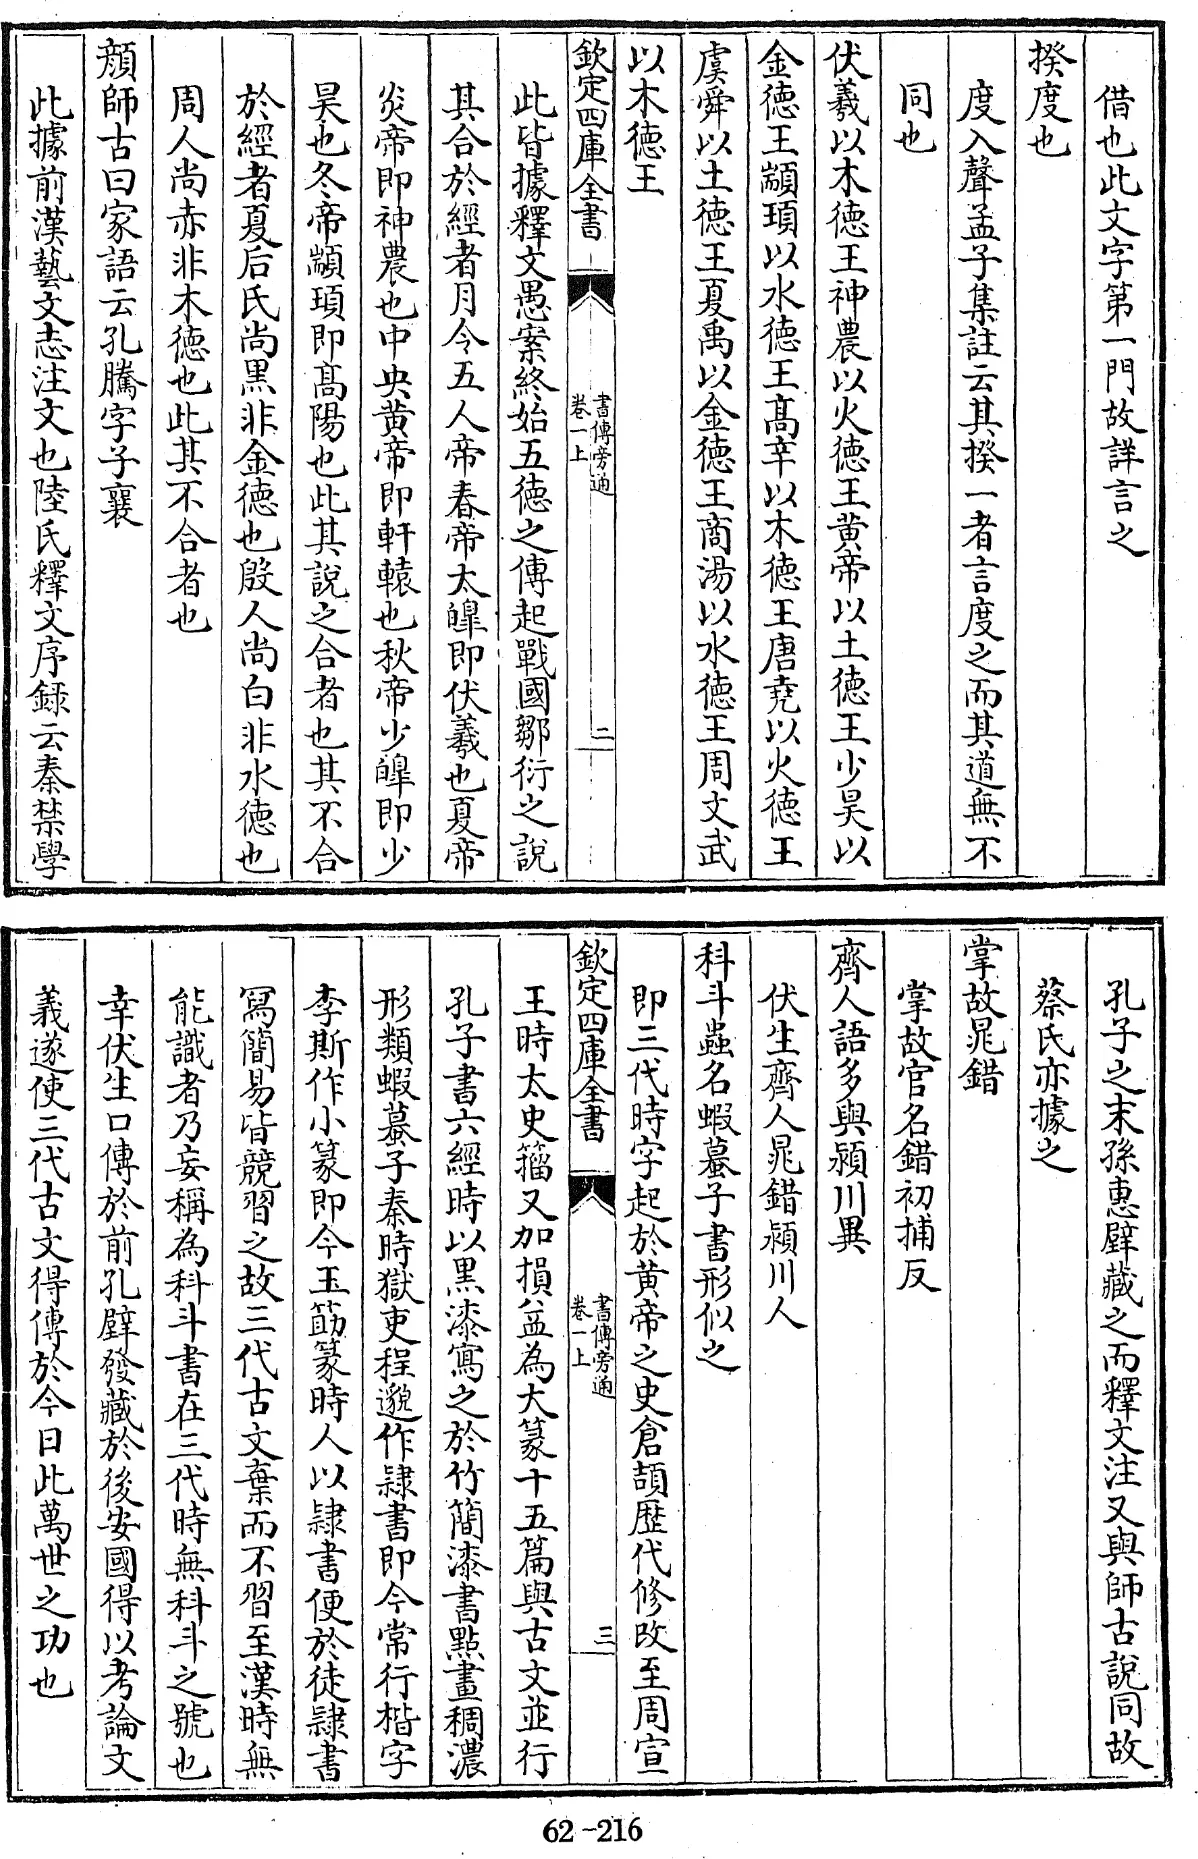 借也此文字第一門故詳言之
揆度也
度入聲孟子集註云其揆一者言度之而其道無不
同也
伏羲以木徳王神農以火徳王黄帝以土徳王少昊以
金徳王顓頊以水徳王髙辛以木徳王唐堯以火徳王
虞舜以土徳王夏禹以金徳王商湯以水徳王周文武
以木徳王
欽定四庫全書
書傳旁通
卷一上
二
此皆據釋文愚案終始五徳之傳起戰國鄒衍之說
其合於經者月令五人帝春帝太皥即伏羲也夏帝
炎帝即神農也中央黄帝即軒轅也秋帝少皥即少
昊也冬帝顓頊即髙陽也此其說之合者也其不合
於經者夏后氏尚黑非金徳也殷人尚白非水徳也
周人尚赤非木徳也此其不合者也
顔師古曰家語云孔騰字子襄
此據前漢藝文志注文也陸氏釋文序録云秦禁學
孔子之末孫惠壁藏之而釋文注又與師古說同故
蔡氏亦據之
掌故晁錯
掌故官名錯初捕反
齊人語多與潁川異
伏生齊人晁錯潁川人
科斗蟲名蝦蟇子書形似之
即三代時字起於黄帝之史倉頡歴代修改至周宣
欽定四庫全書
書傳旁通
卷一上
三
王時太史籀又加損益為大篆十五篇與古文並行
孔子書六經時以黒漆寫之於竹簡漆書點畫稠濃
形類蝦蟇子秦時獄吏程邈作隷書即今常行楷字
李斯作小篆即今玉筯篆時人以隷書便於徒隷書
寫簡易皆競習之故三代古文棄而不習至漢時無
能識者乃妄稱為科斗書在三代時無科斗之號也
幸伏生口傳於前孔壁發藏於後安國得以考論文
義遂使三代古文得傳於今日此萬世之功也
62-216